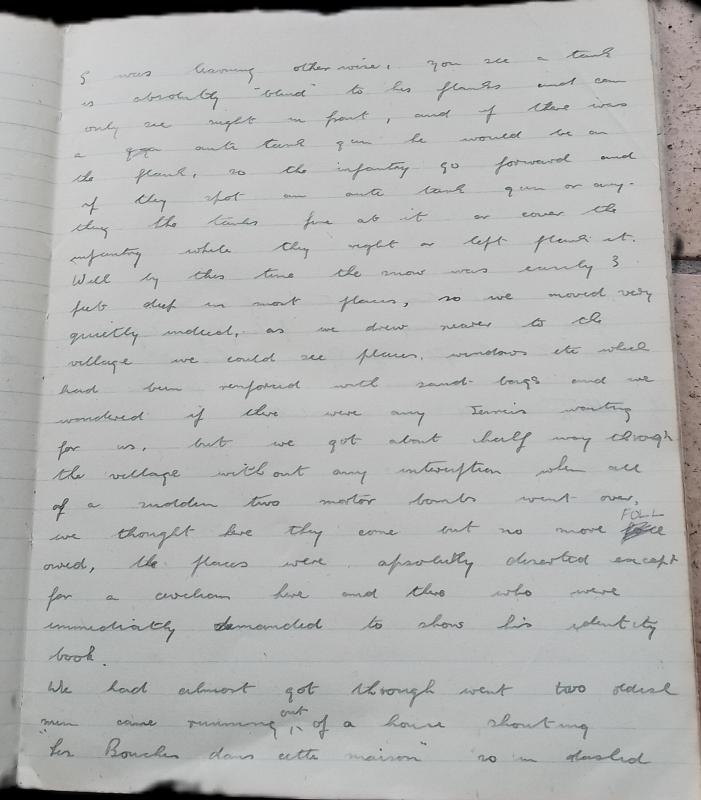 I was learning otherwise, you see a tank
is absolutely "blind" to his flanks and can
only see right in front, and if there was
a anti tank gun he would be on
the flank, so the infantry go forward and
if they spot an ante tank gun or any-
thing the tanks fire at it or cover the
infantry while they right or left flank it.
Well by this time the snow was easily 3
feet deep in most places, so we moved very
quietly indeed, as we drew nearer to the
village we could see places, windows etc which
had been reinforced with sand-bags and we
wondered if there were any Jerries waiting
for us, but we got about half way through
the village without any interuption when all
of a sudden two mortar bombs went over,
we thought here they come but no more FOLL
owed, the places were apsolutly deserted except
for a civilian here and there who were
immediatly demanded to show his identity
book.
We had almost got through went two oldish
men came running out of a house shouting
"Les Bouches dans cette maison" so in dashed